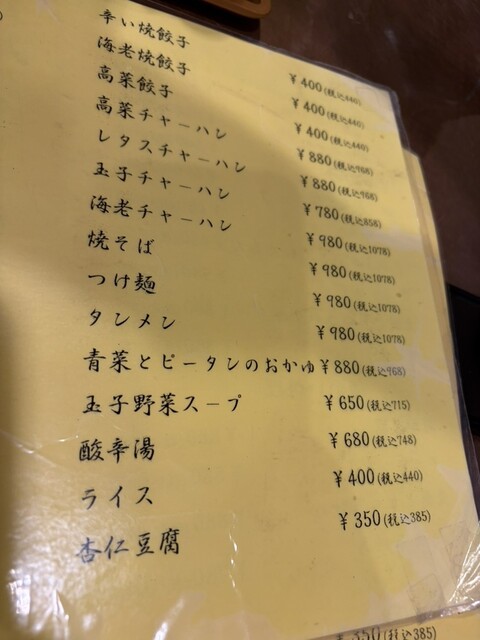 辛い焼餃子 ¥400(税込440)
海老焼餃子 ¥400(税込440)
高菜餃子 ¥400(税込440)
高菜チャーハン ¥880(税込968)
レタスチャーハン ¥880(税込968)
玉子チャーハン ¥780(税込858)
海老チャーハン ¥980(税込1078)
焼そば ¥980(税込1078)
つけ麺 ¥980(税込1078)
タンメン ¥980(税込1078)
青菜とピータンのおかゆ ¥880(税込968)
玉子野菜スープ ¥650(税込715)
酸辛湯 ¥680(税込748)
ライス ¥400(税込440)
杏仁豆腐 ¥350(税込385)
350(税込385)